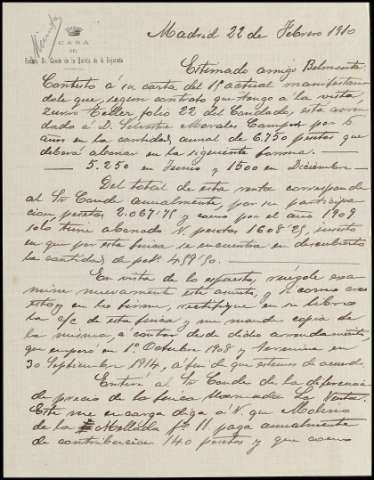 CASA
DEL
Excmo. Sr. Conde de la Quinta de la Enjarada
Madrid 22 de Febrero 1910
Estimado amigo Belmonte
Contesto á su carta del 1º actual manifestan
dole que, segun contrato que tengo á la vista,
folio 22 del Condado, está arren
dado á D. Silvestre Morales Campos por 6
años en la cantidad anual de 6.750 pesetas que
deberá abonar en la siguiente forma:
5.250 en Junio y 1500 en Diciembre
Del total de esta renta corresponde
al Sr Conde anualmente, por su participa
cion pesetas 2.067'75 y como por el año 1909
solo tiene abonado V. pesetas 1608'25, resulta
en que por esta finca se encuentra en descubierto
la cantidad de pts 459'50.
En vista de lo expuesto, ruégole exa
mine nuevamente este asunto, y si como creo
estoy en lo firme, rectifique, en su libro
la c/c de esta finca y me mande copia de
la misma, a contar desde dicho arrendamiento,
que empezó en 1º Octubre 1908 y termina en
30 Septiembre 1914, a fin de que estemos de acuerdo.
Enteré al Sr Conde de la diferencia
de precio de la finca llamada La Venta.
Este me encarga diga á V. que Molino
de la Mollada fº 11 paga anualmente
de contribucion 140 pesetas y que como